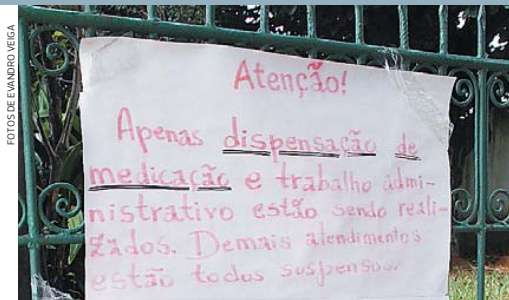 FOTOS DE EVANDRO VEIGA
Atenção!
Apenas dispensação de
medicação e trabalho admi-
nistrativo estão sendo reali-
zados. Demais atendimentos
estão todos suspensos.